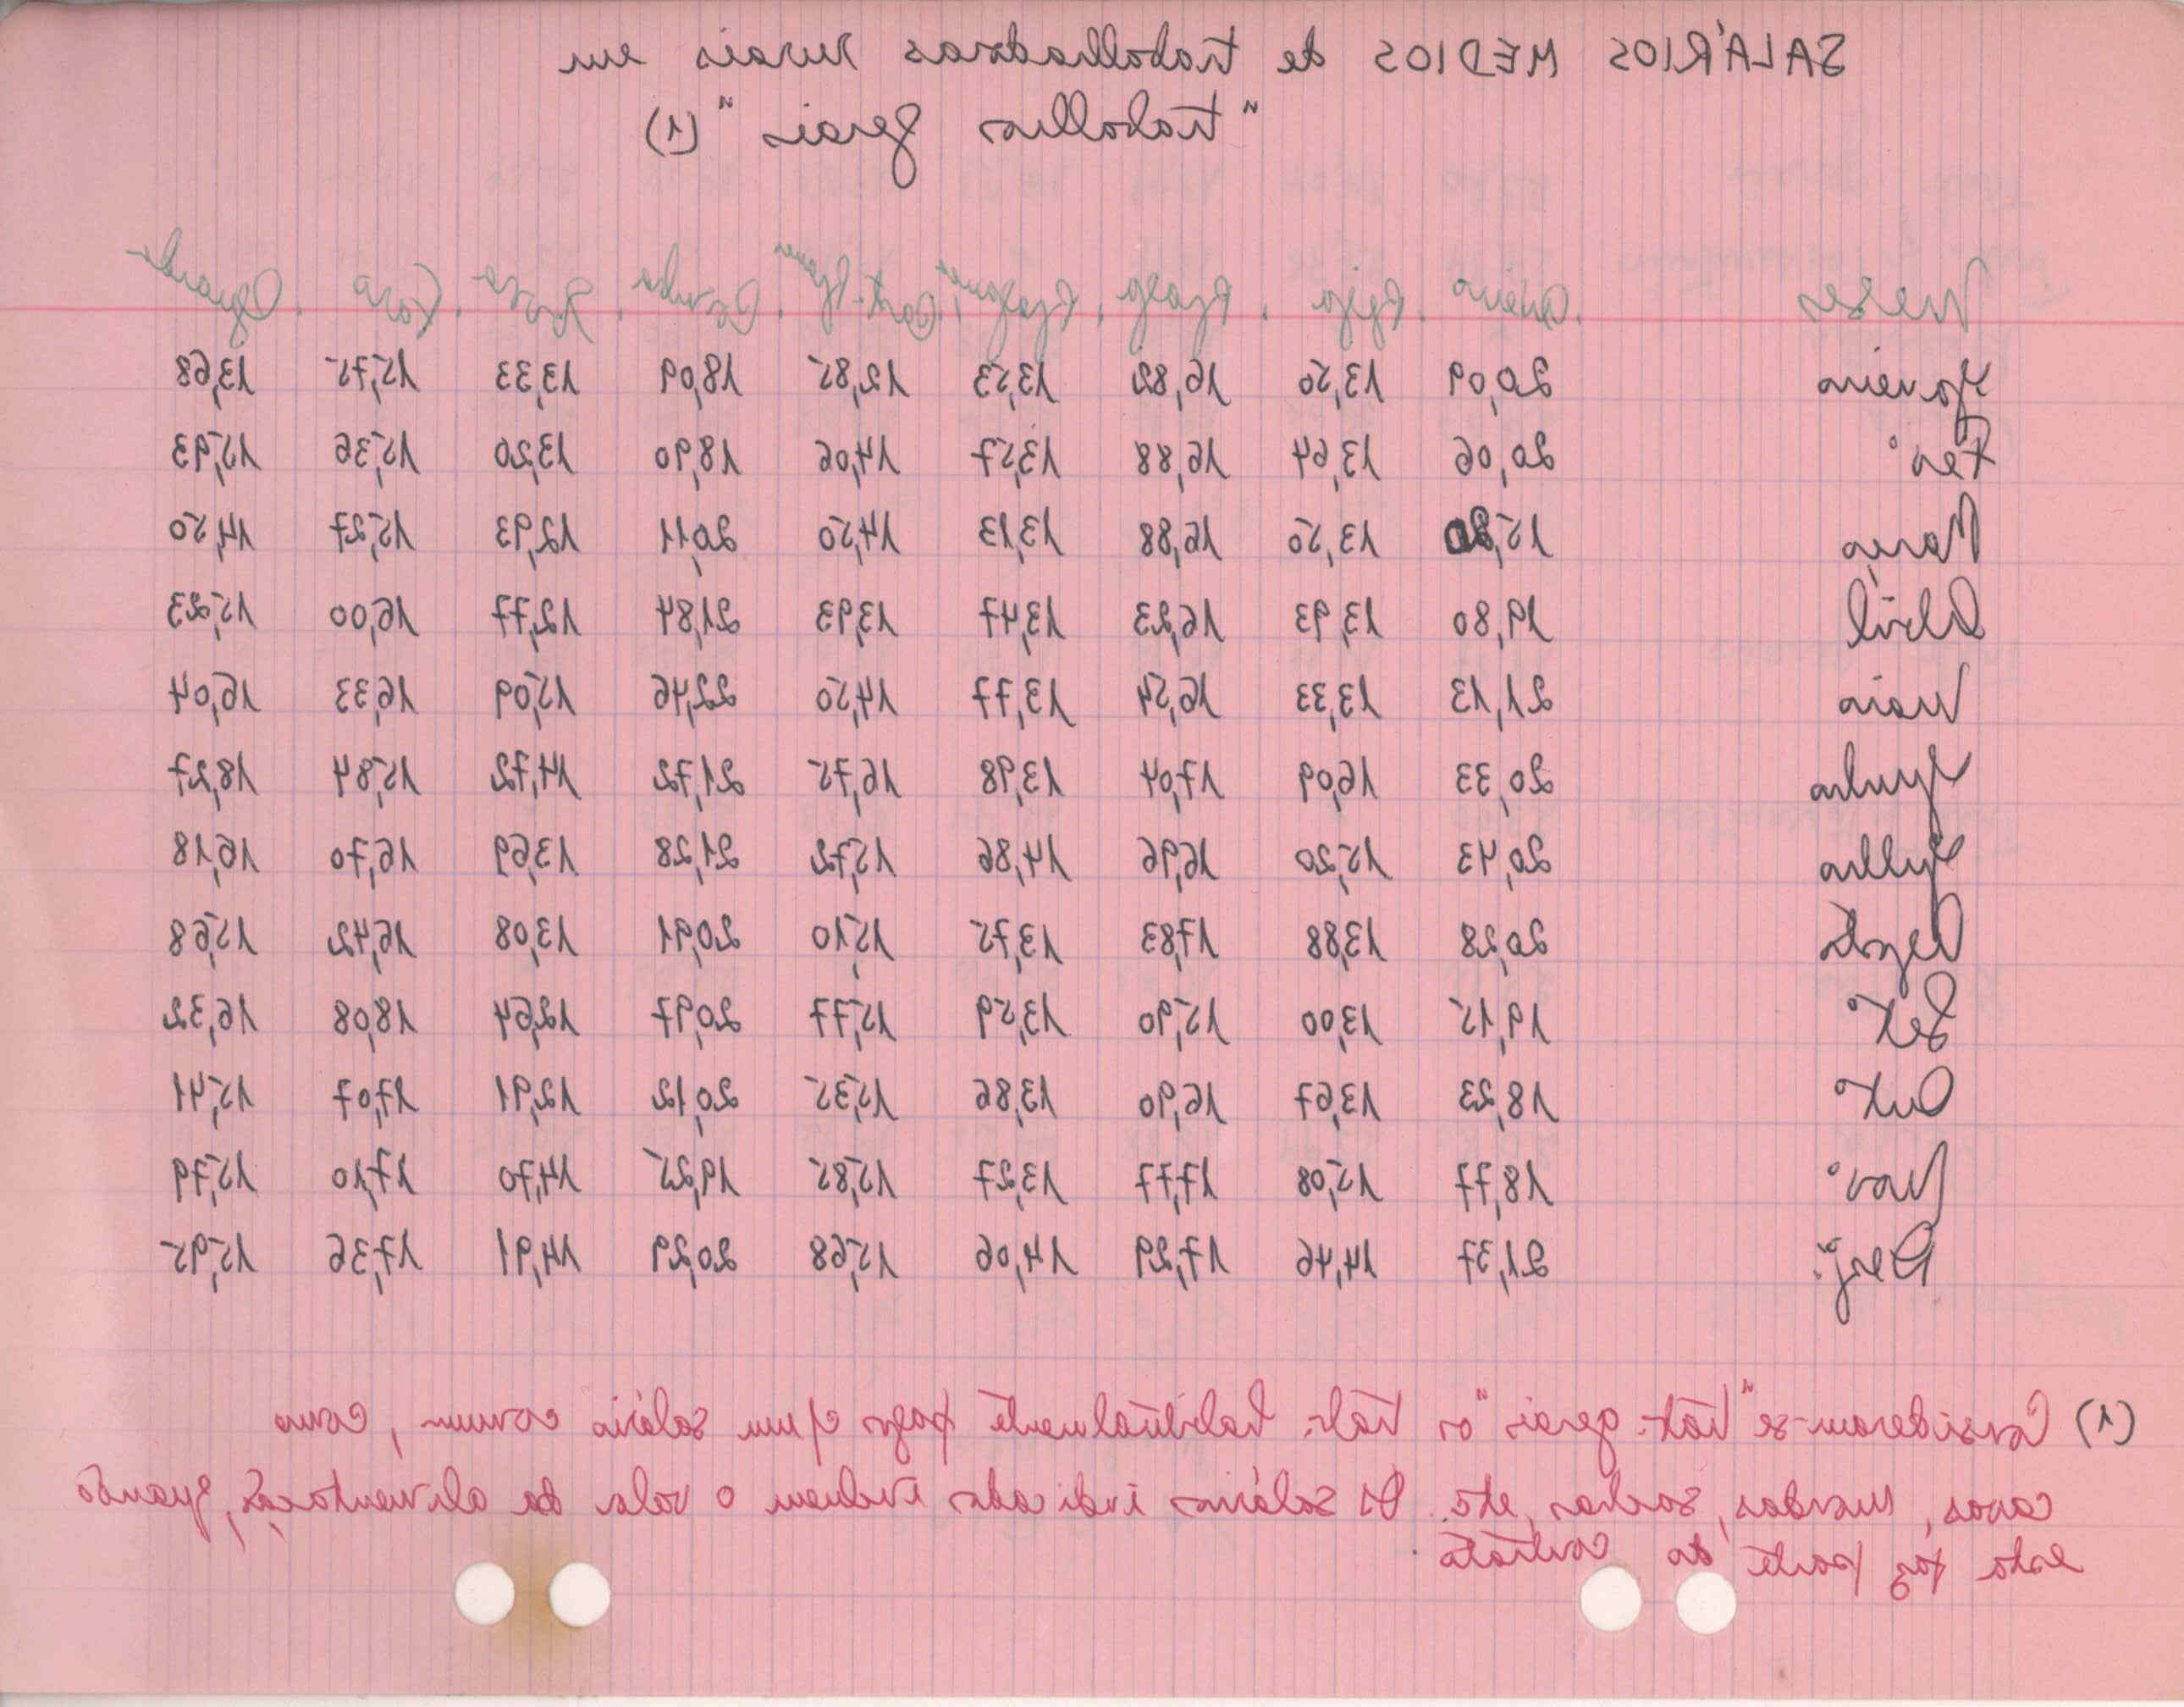 SALÁRIOS MÉDIOS de trabalhadoras rurais em
"trabalhos gerais" (1)
Meses Aveiro Beja Braga Bragança Cast. Branco Coimbra Évora Faro Guarda
Janeiro 20,09 13,50 16,82 13,53 12,85 18,09 13,33 15,75 13,68
Fev.º 20,06 13,64 16,88 13,57 14,06 18,90 13,20 15,36 15,93
Março 15,80 13,50 16,88 13,13 14,50 20,11 12,93 15,27 14,50
Abril 19,80 13,93 16,23 13,47 13,93 21,84 12,77 16,00 15,23
Maio 21,13 13,33 16,54 13,77 14,50 22,46 15,09 16,33 16,04
Junho 20,33 16,09 17,04 13,98 16,75 21,72 14,72 15,84 18,27
Julho 20,43 15,20 16,96 14,86 15,72 21,28 13,69 16,70 16,18
Agosto 20,28 13,88 17,83 13,75 15,10 20,91 13,08 16,42 15,68
Set.º 19,15 13,00 15,90 13,59 15,77 20,97 12,64 18,08 16,32
Out.º 18,23 13,67 16,90 13,86 15,35 20,12 12,91 17,07 15,41
Nov.º 18,77 15,08 17,77 13,27 15,85 19,25 14,70 17,10 15,79
Dez.º 21,37 14,46 17,29 14,06 15,68 20,29 14,91 17,36 15,95
(1) Consideram-se "trab. gerais" os trab. habitualmente pagos c/ um salário comum, como
cavas, mondas, sachas, etc. Os salários indicados incluem o valor da alimentação, quando
esta faz parte do contrato.